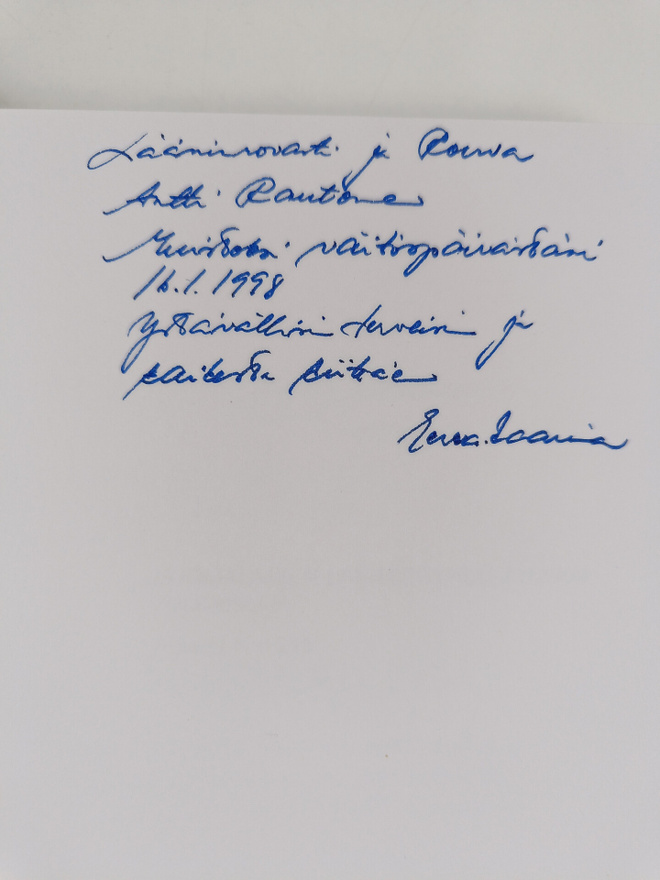 Lääninrovasti ja Rouva
Antti Rautione
Muistoksi väitöspäivästäni
16.1.1998
Ystävällisin tervein ja
kaikesta kiittäen